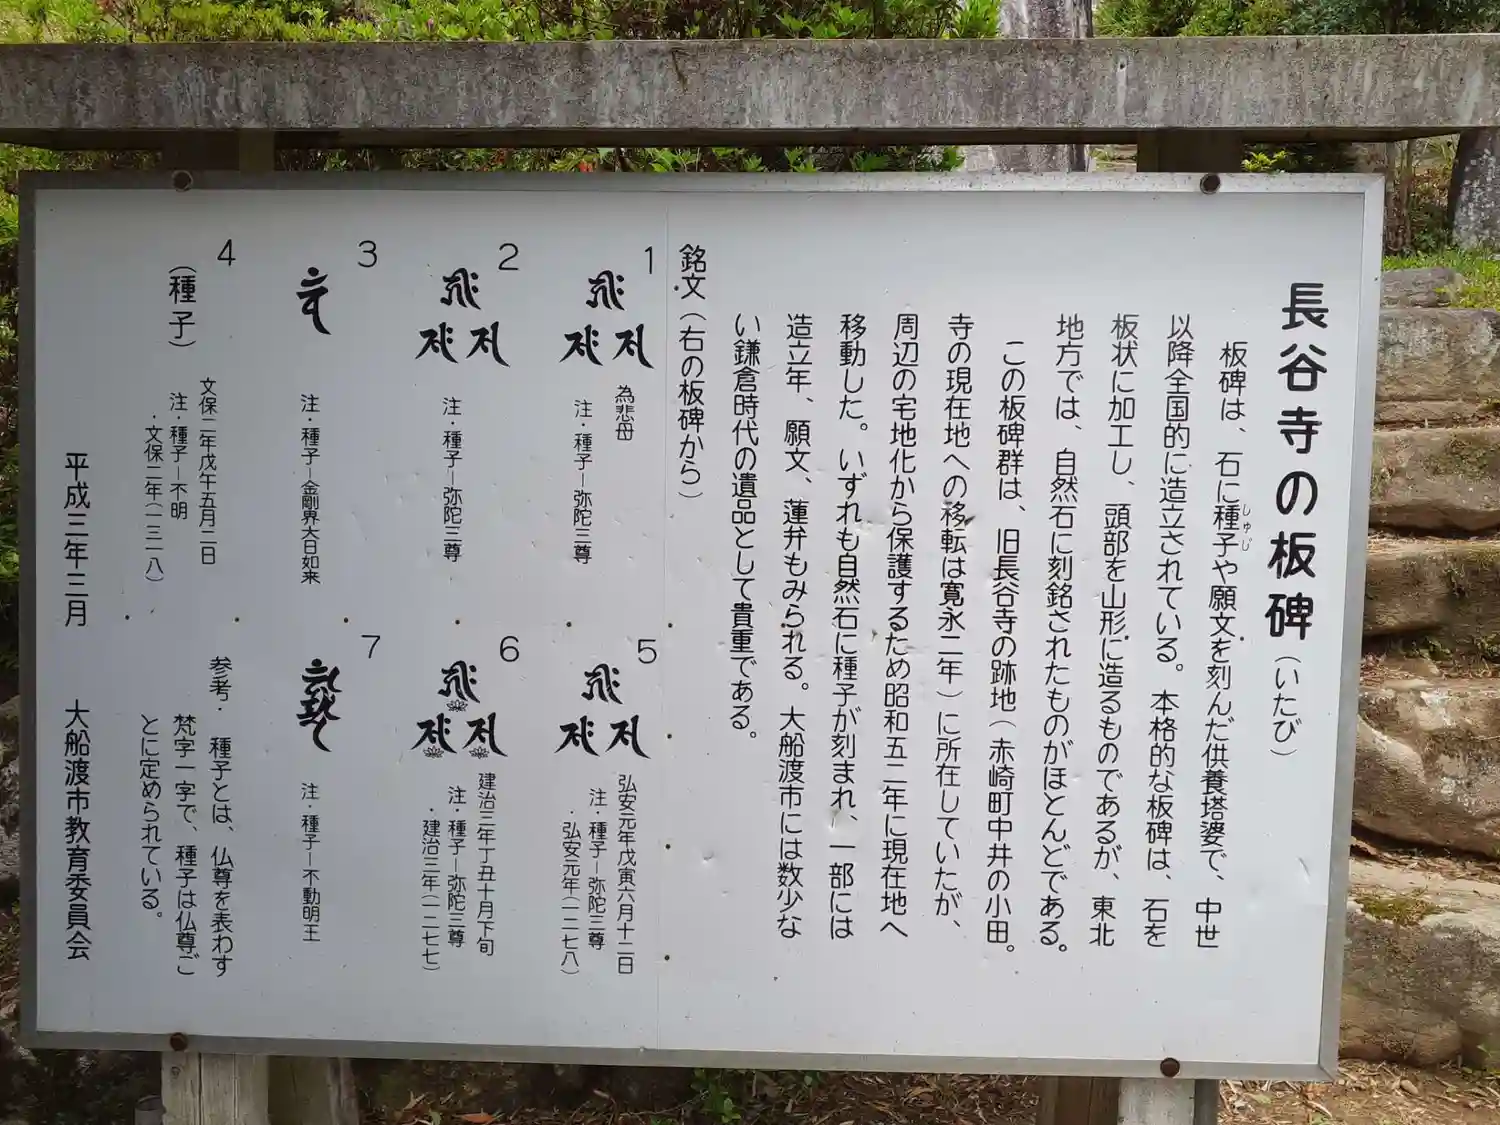 長谷寺の板碑（いたび）
板碑は、石に種子や願文を刻んだ供養塔婆で、中世
しゅじ
以降全国的に造立されている。本格的な板碑は、石を
板状に加工し、頭部を山形に造るものであるが、東北
地方では、自然石に刻銘されたものがほとんどである。
この板碑群は、旧長谷寺の跡地（赤崎町中井の小田。
寺の現在地への移転は寛永二年）に所在していたが、
周辺の宅地化から保護するため昭和五二年に現在地へ
移動した。いずれも自然石に種子が刻まれ、一部には
造立年、願文、蓮弁もみられる。大船渡市には数少な
い鎌倉時代の遺品として貴重である。
銘文（右の板碑から）
1
為悲母
注・種子ー弥陀三尊
2
注・種子ー弥陀三尊
3
注・種子ー金剛界大日如来
4
（種子）
文保二年戊午五月二日
注・種子ー不明
・文保二年（一三一八）
5
弘安元年戊寅六月十二日
注・種子ー弥陀三尊
・弘安元年（一二七八）
6
建治三年丁丑十月下旬
注・種子ー弥陀三尊
・建治三年（一二七七）
7
注・種子ー不動明王
参考・種子とは、仏尊を表わす
梵字一字で、種子は仏尊ご
とに定められている。
平成三年三月　大船渡市教育委員会